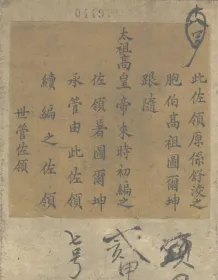 此佐領原係舒濬之
胞伯高祖圖爾坤
跟隨
太祖高皇帝來時初編之
佐領著圖爾坤
承管由此佐領
續編之佐領
世管佐領
貳甲
七号